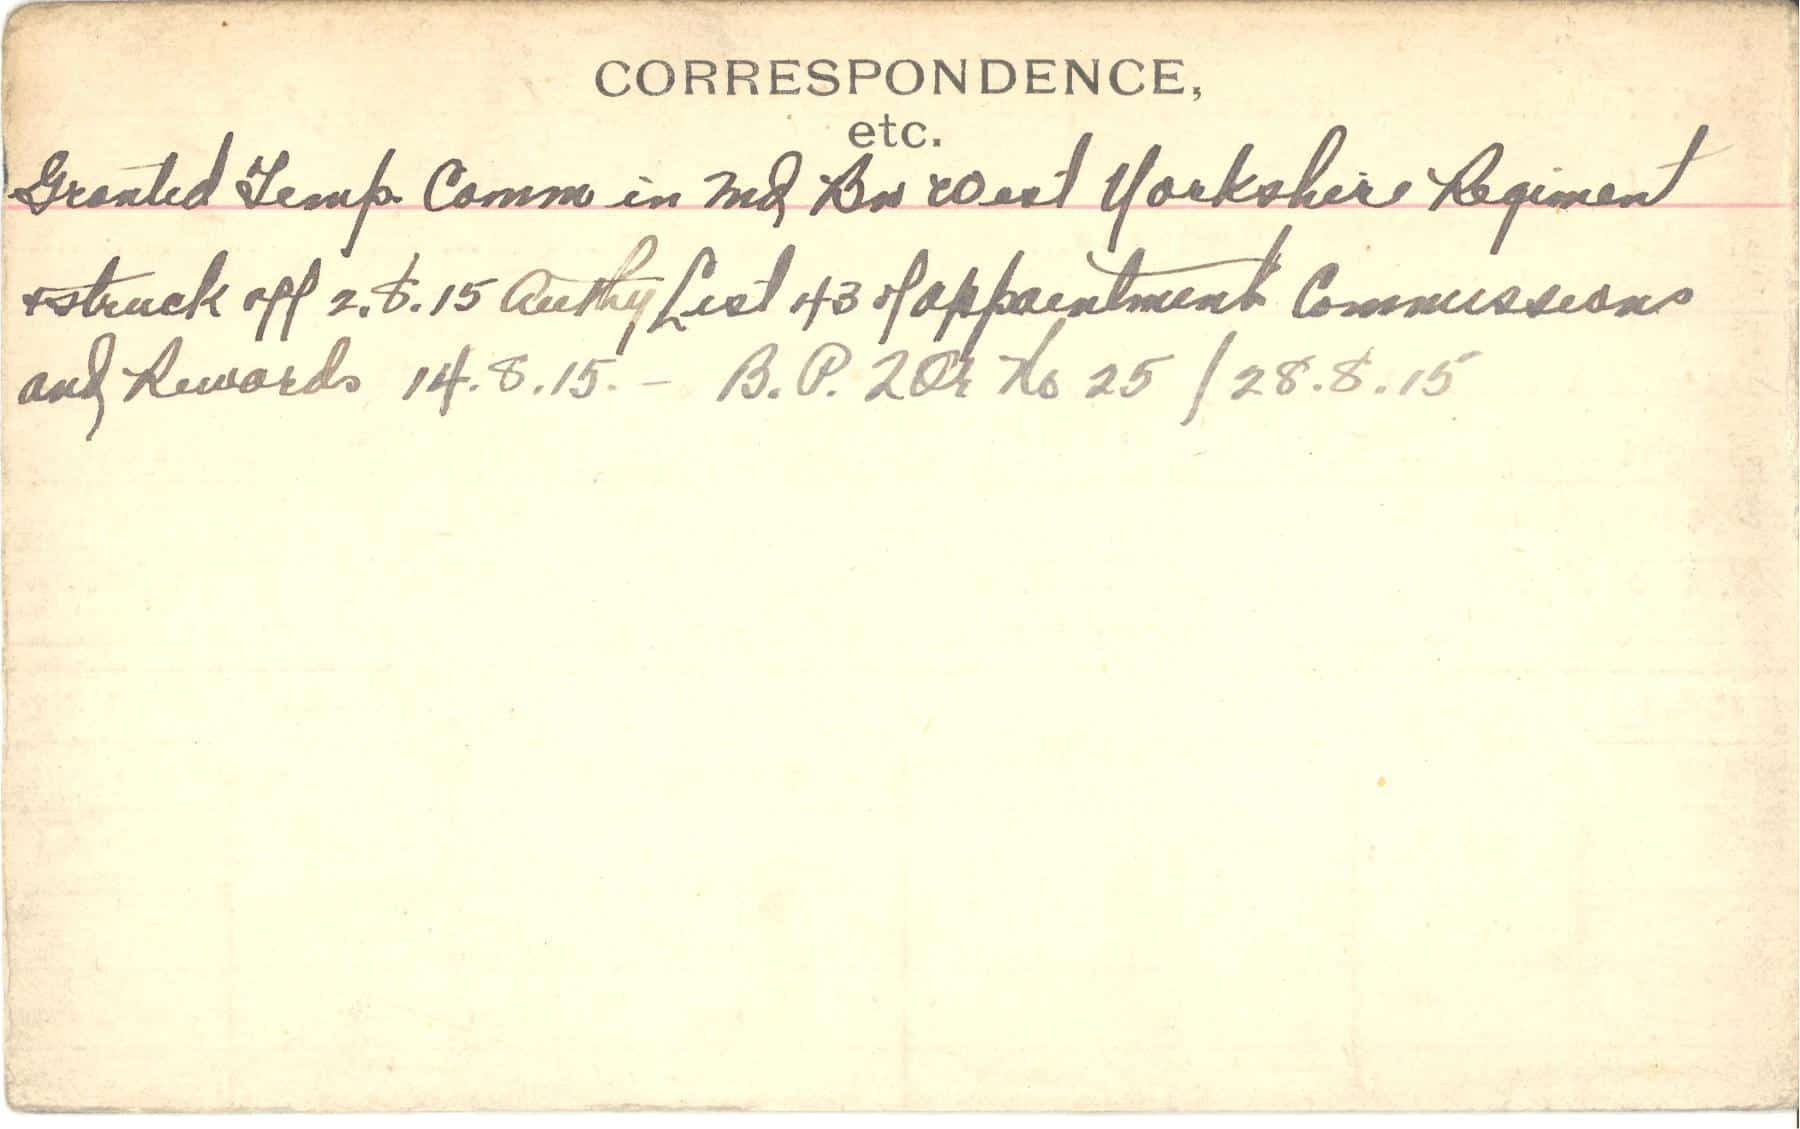 CORRESPONDENCE,
etc.
Granted Temp. Comm in Bn West Yorkshire Regiment
& struck off 2.8.15 Authy List 43 of appointment Commissions
and Rewards 14.8.15. - B.P. 2 Or No 25 / 28.8.15